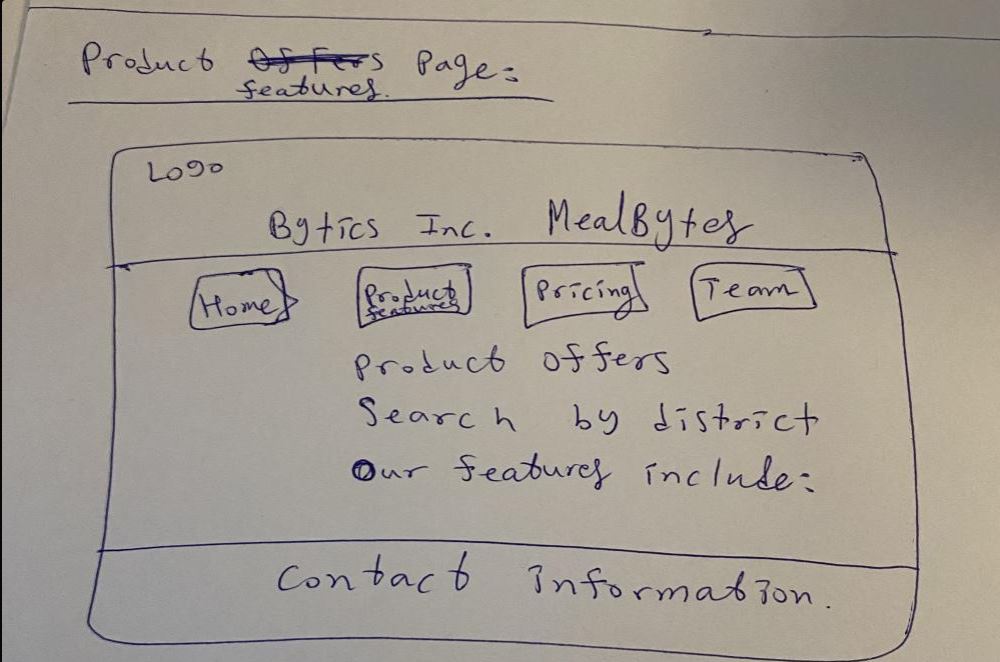 Product Offers Page:
features.
Logo
Bytics Inc. MealBytes
Home
Product
features
Pricing
Team
Product offers
Search by district
Our features include:
Contact Information.